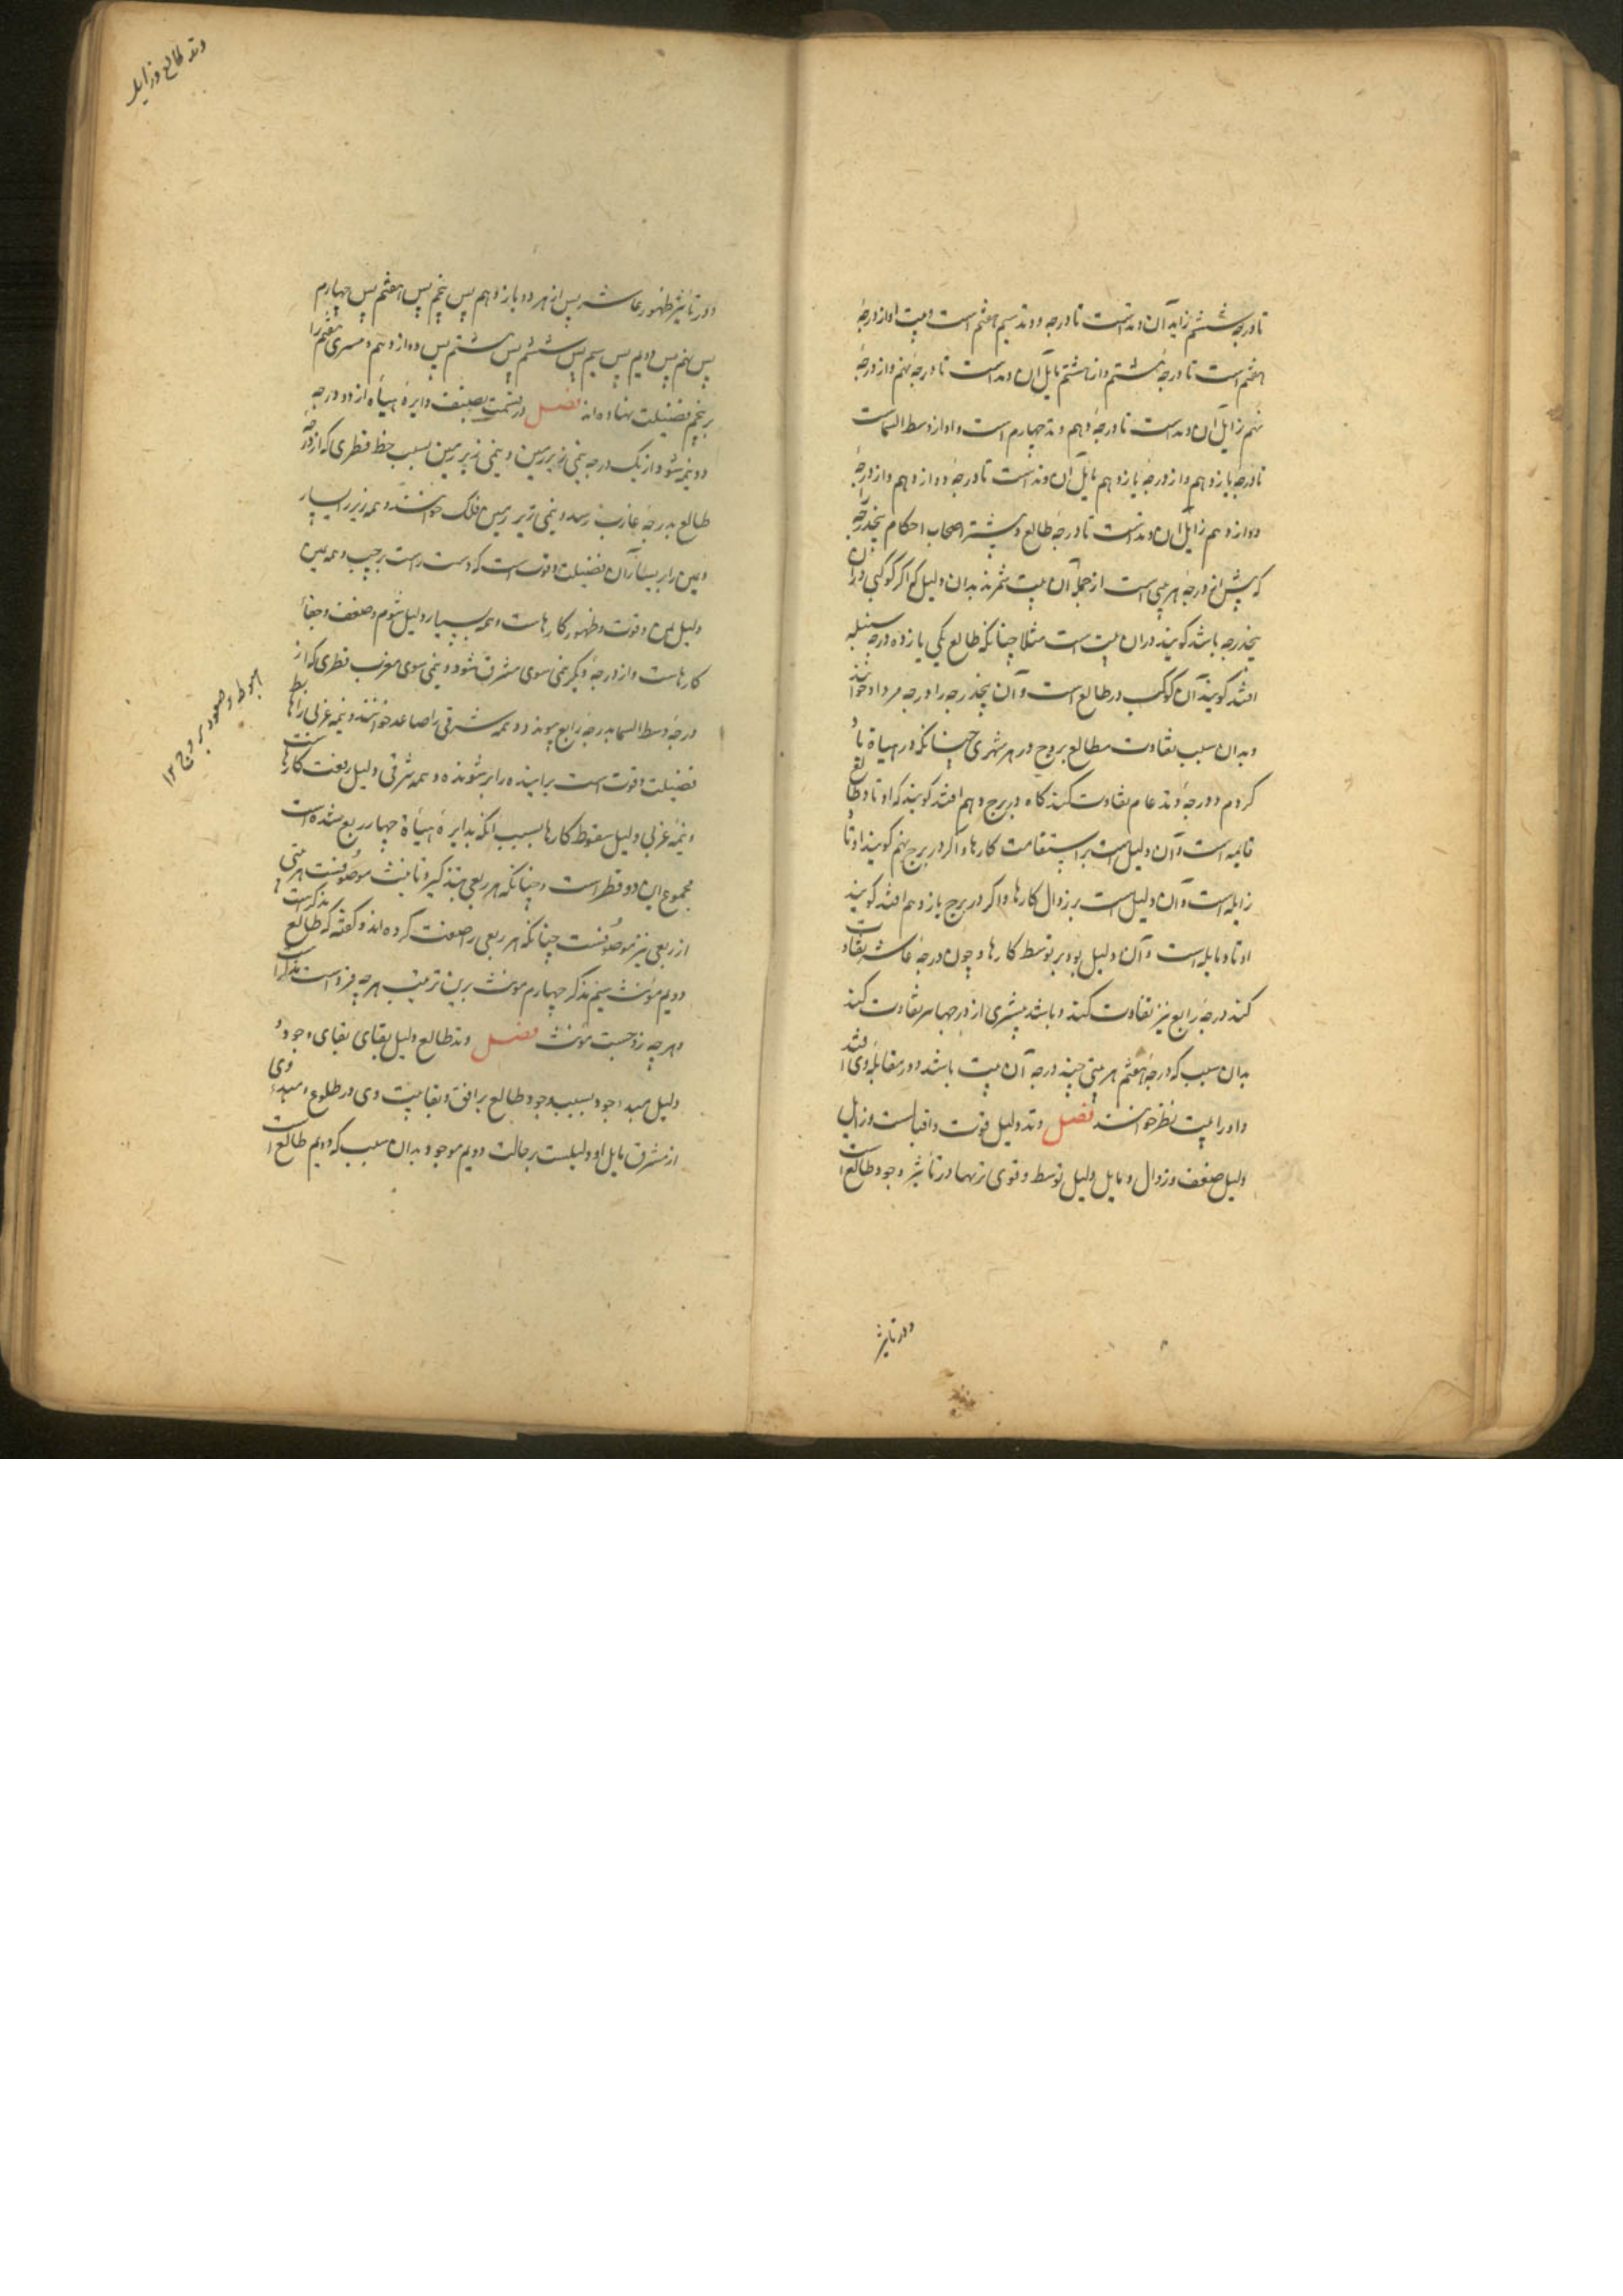 تا درجه ششم زاید آن وتدست تا درجه و وتد سیم هفتم است و بیت او از درجهٔ
هفتم است تا درجهٔ هشتم و از هشتم مایل آن وتد است تا درجهٔ نهم و از درجهٔ
نهم زایل آن وتد است تا درجهٔ دهم وتد چهارم است و او از وسط السماست
تا درجهٔ یازدهم و از درجهٔ یازدهم مایل آن وتد است تا درجهٔ دوازدهم و از درجهٔ
دوازدهم زایل آن وتدست تا درجهٔ طالع و بیشتر اصحاب احکام پنجدرجه
که پیش از درجهٔ هر بیتی است از جملهٔ آن بیت شمرند بدان دلیل که اگر کوکبی در آن
پنجدرجه باشد گویند در آن بیت است مثلا چنانکه طالع یکی یازده درجه سنبله
افتد گویند آن کوکب در طالع است و آن پنجدرجه را درجه مرده خوانند
و بدان سبب تفاوت مطالع بروج در هر شهری چنانکه در هیاة یاد
کردم و درجهٔ وتد عاشر تفاوت کند گاه در برج دهم افتد گویند که اوتاد طالع
قایمه است و آن دلیل است بر استقامت کارها و اگر در برج نهم گویند اوتاد
زایله است و آن دلیل است بر زوال کارها و اگر در برج یازدهم افتد گویند
اوتاد مایله است و آن دلیل بود بر توسط کارها و چون درجهٔ عاشر تفاوت
کند درجهٔ رابع نیز تفاوت کند و باشد بیشتری از درجها هم تفاوت کند
بدان سبب که درجهٔ هفتم هر بیتی چند درجه آن بیت باشد و در مقابلهٔ وی افتد
و او را بیت نظر خوانند فصل وتد دلیل قوت و اقبالست و زایل
دلیل ضعف و زوال و مایل دلیل توسط و قوی ترینها در تأثیر وجود طالع است
و در تاثیر
و در تأثیر ظهور عاشر پس از هر دو یازدهم پس پنجم پس هفتم پس چهارم
پس نهم پس دویم پس سیم پس ششم پس هشتم پس دوازدهم و هفتم را
بر پنجم فضیلت نهاده اند فصل در قسمت تصنیف دایرهٔ هیأة از دو درجه
دو نیمه شود از یک درجه نیمی زبر زمین و نیمی زیر زمین بسبب خط قطری که از درجه
طالع بدرجهٔ غارب رسد و نیمی زیر زمین فلک خوانند و نیمه زبر را یسار
و یمین را بر یسار آن فضیلت و قوت است که دست راست بر چپ و نیمه یمین
دلیل یمن و قوت و ظهور کارهاست و نیمه یسار دلیل شوم و ضعف و خفاء
کارهاست و از درجهٔ دیگر نیمی سوی مشرق شود و نیمی سوی مغرب قطری که از
درجهٔ وسط السما بدرجهٔ رابع پیوندد و نیمه شرقی را صاعد خوانند و نیمه غربی را هابط
فضیلت و قوت است برآینده را بر شونده و نیمه شرقی دلیل رفعت کارها
و نیمهٔ غربی دلیل سقوط کارها بسبب آنکه بدایرهٔ هیأة چهار ربع شده است
مجموع این دو قطر است و چنانکه هر ربعی بتذکیر و تانیث موصوفست هر بیتی
از ربعی نیز موصوفست چنانکه هر ربعی را صفت کرده اند و گفته که طالع مذکرست
دویم مؤنث سیم مذکر چهارم مونث برین ترتیب هر چه فردست مذکر است
و هر چه زوجست مؤنث فصل وتد طالع دلیل بقای بقای وجود
دلیل مبداء وجود بسبب وجود طالع بر افق و بقا بیت وی در طلوع
از مشرق مایل او دلیلست بر حالت دویم موجود بدان سبب که دویم طالع است
وتد طالع و زایل
هبوط و صعود بروج ۱۲